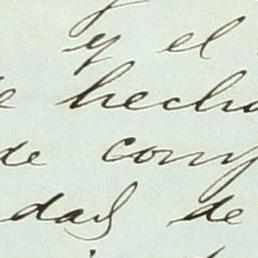 y el
hecho
de com
dad de